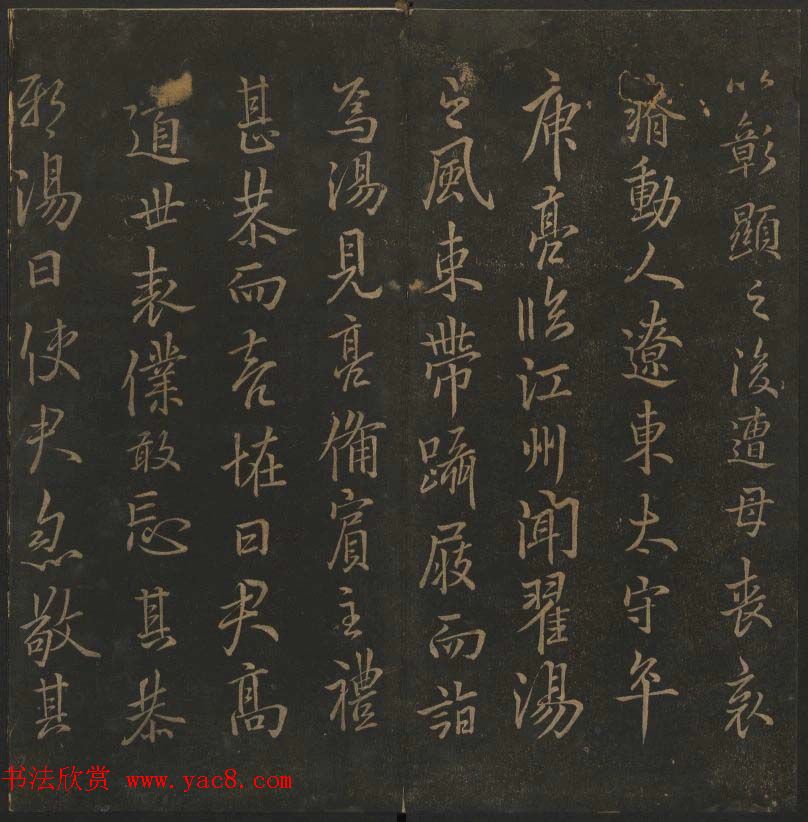 以彰顯之後遭母喪哀
瘠動人遼東太守卒
庾亮臨江州聞翟湯
之風束帶躡屐而詣
焉湯見亮備賓主禮
甚恭而告媎曰使君高
道世表僕敢忘其恭
邪湯曰使君忽敬其
书法欣赏 www.yac8.com